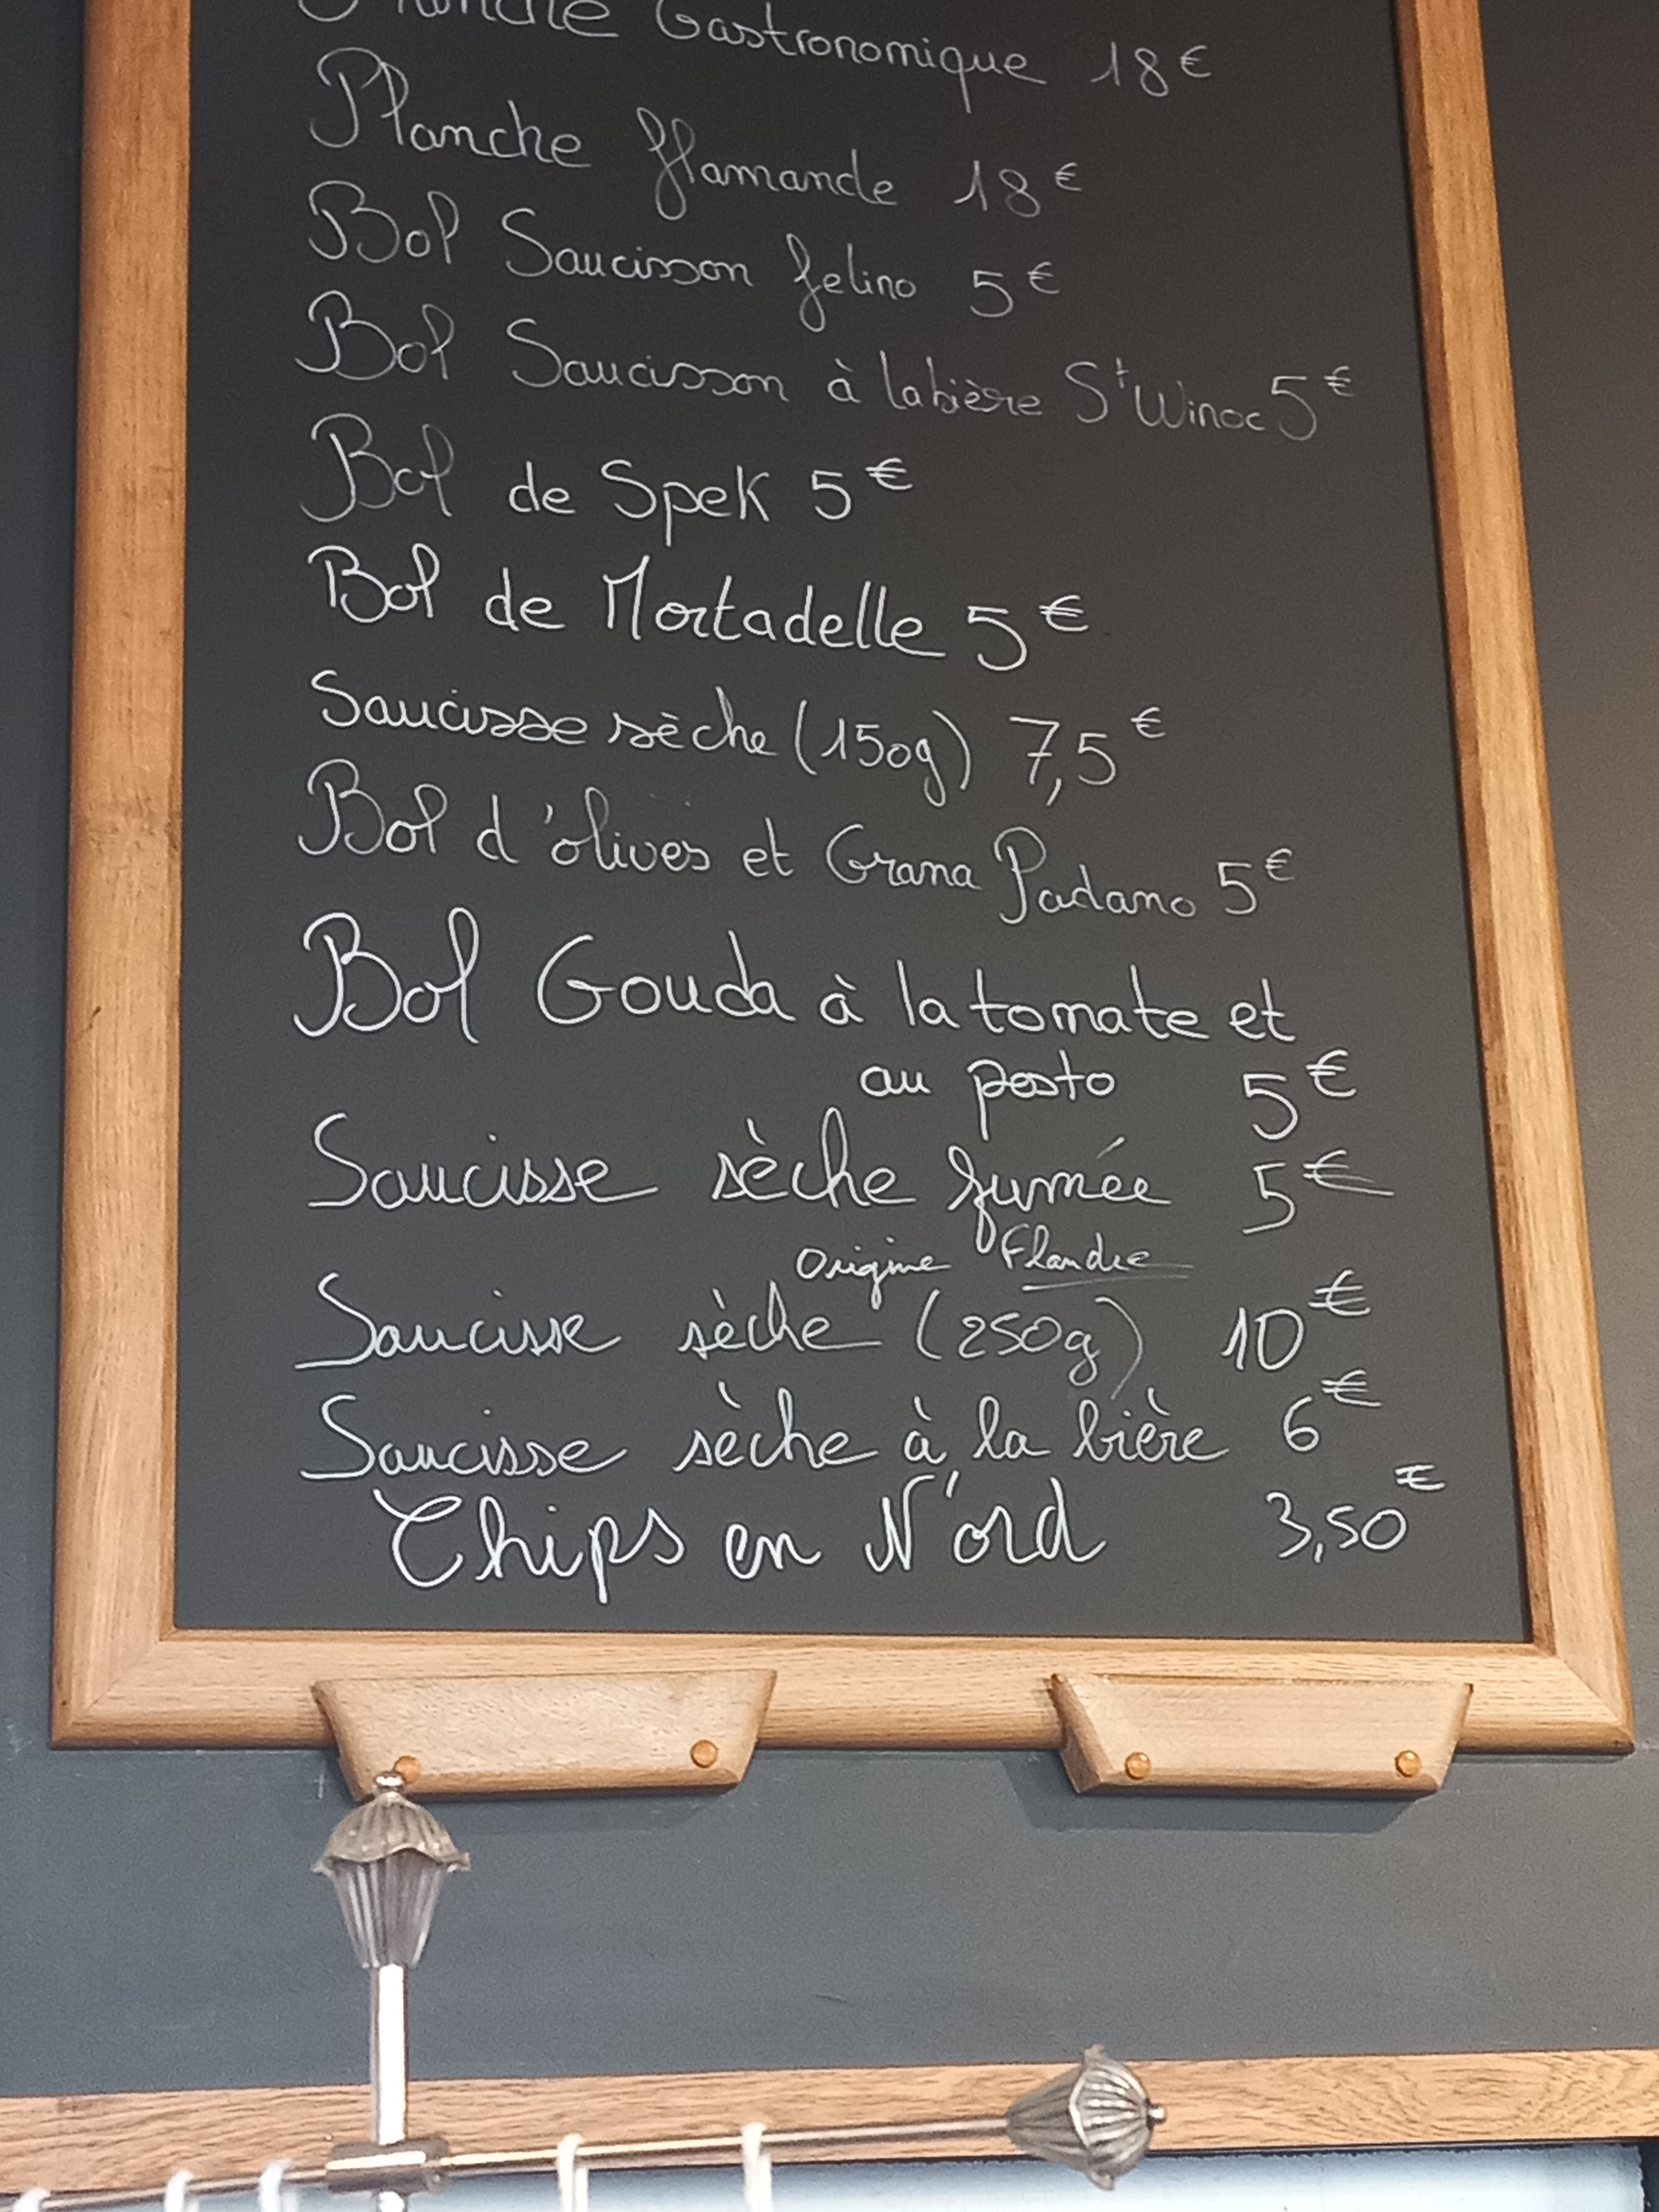 Planche Gastronomique 18€
Planche flamande 18€
Bol Saucisson felino 5€
Bol Saucisson à la bière St Winoc 5€
Bol de Spek 5€
Bol de Mortadelle 5€
Saucisse sèche (150g) 7,5€
Bol d'olives et Grana Padano 5€
Bol Gouda à la tomate et
au pesto 5€
Saucisse sèche fumée 5€
Origine Flandre
Saucisse sèche (250g) 10€
Saucisse sèche à la bière 6€
Chips en N'ord 3,50€